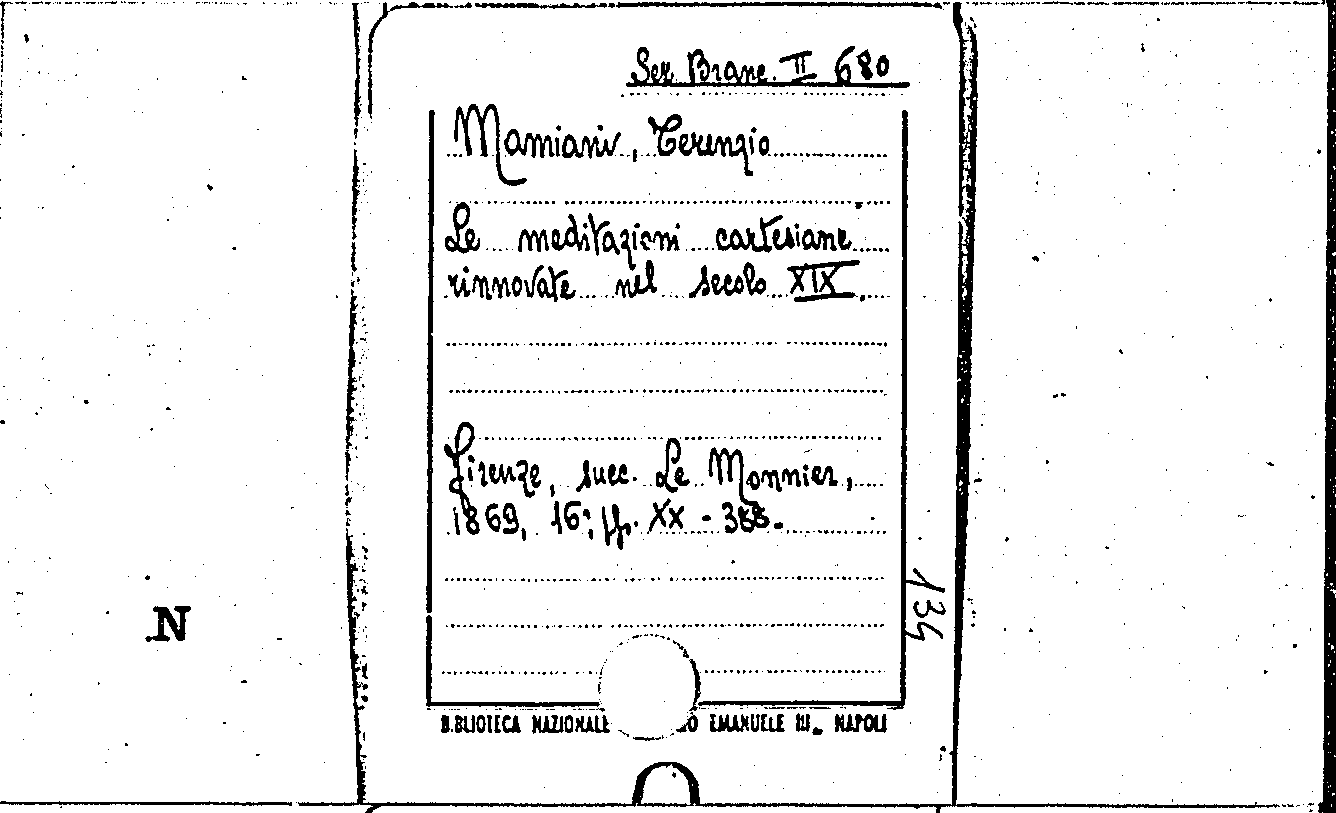 Ser. Branc. II 680
Mamiani, Terenzio
Le meditazioni cartesiane
rinnovate nel secolo XIX.
Firenze, succ. Le Monnier,
1869, 16°; pp. XX - 388.
134
N
BIBLIOTECA NAZIONALE EMANUELE III - NAPOLI